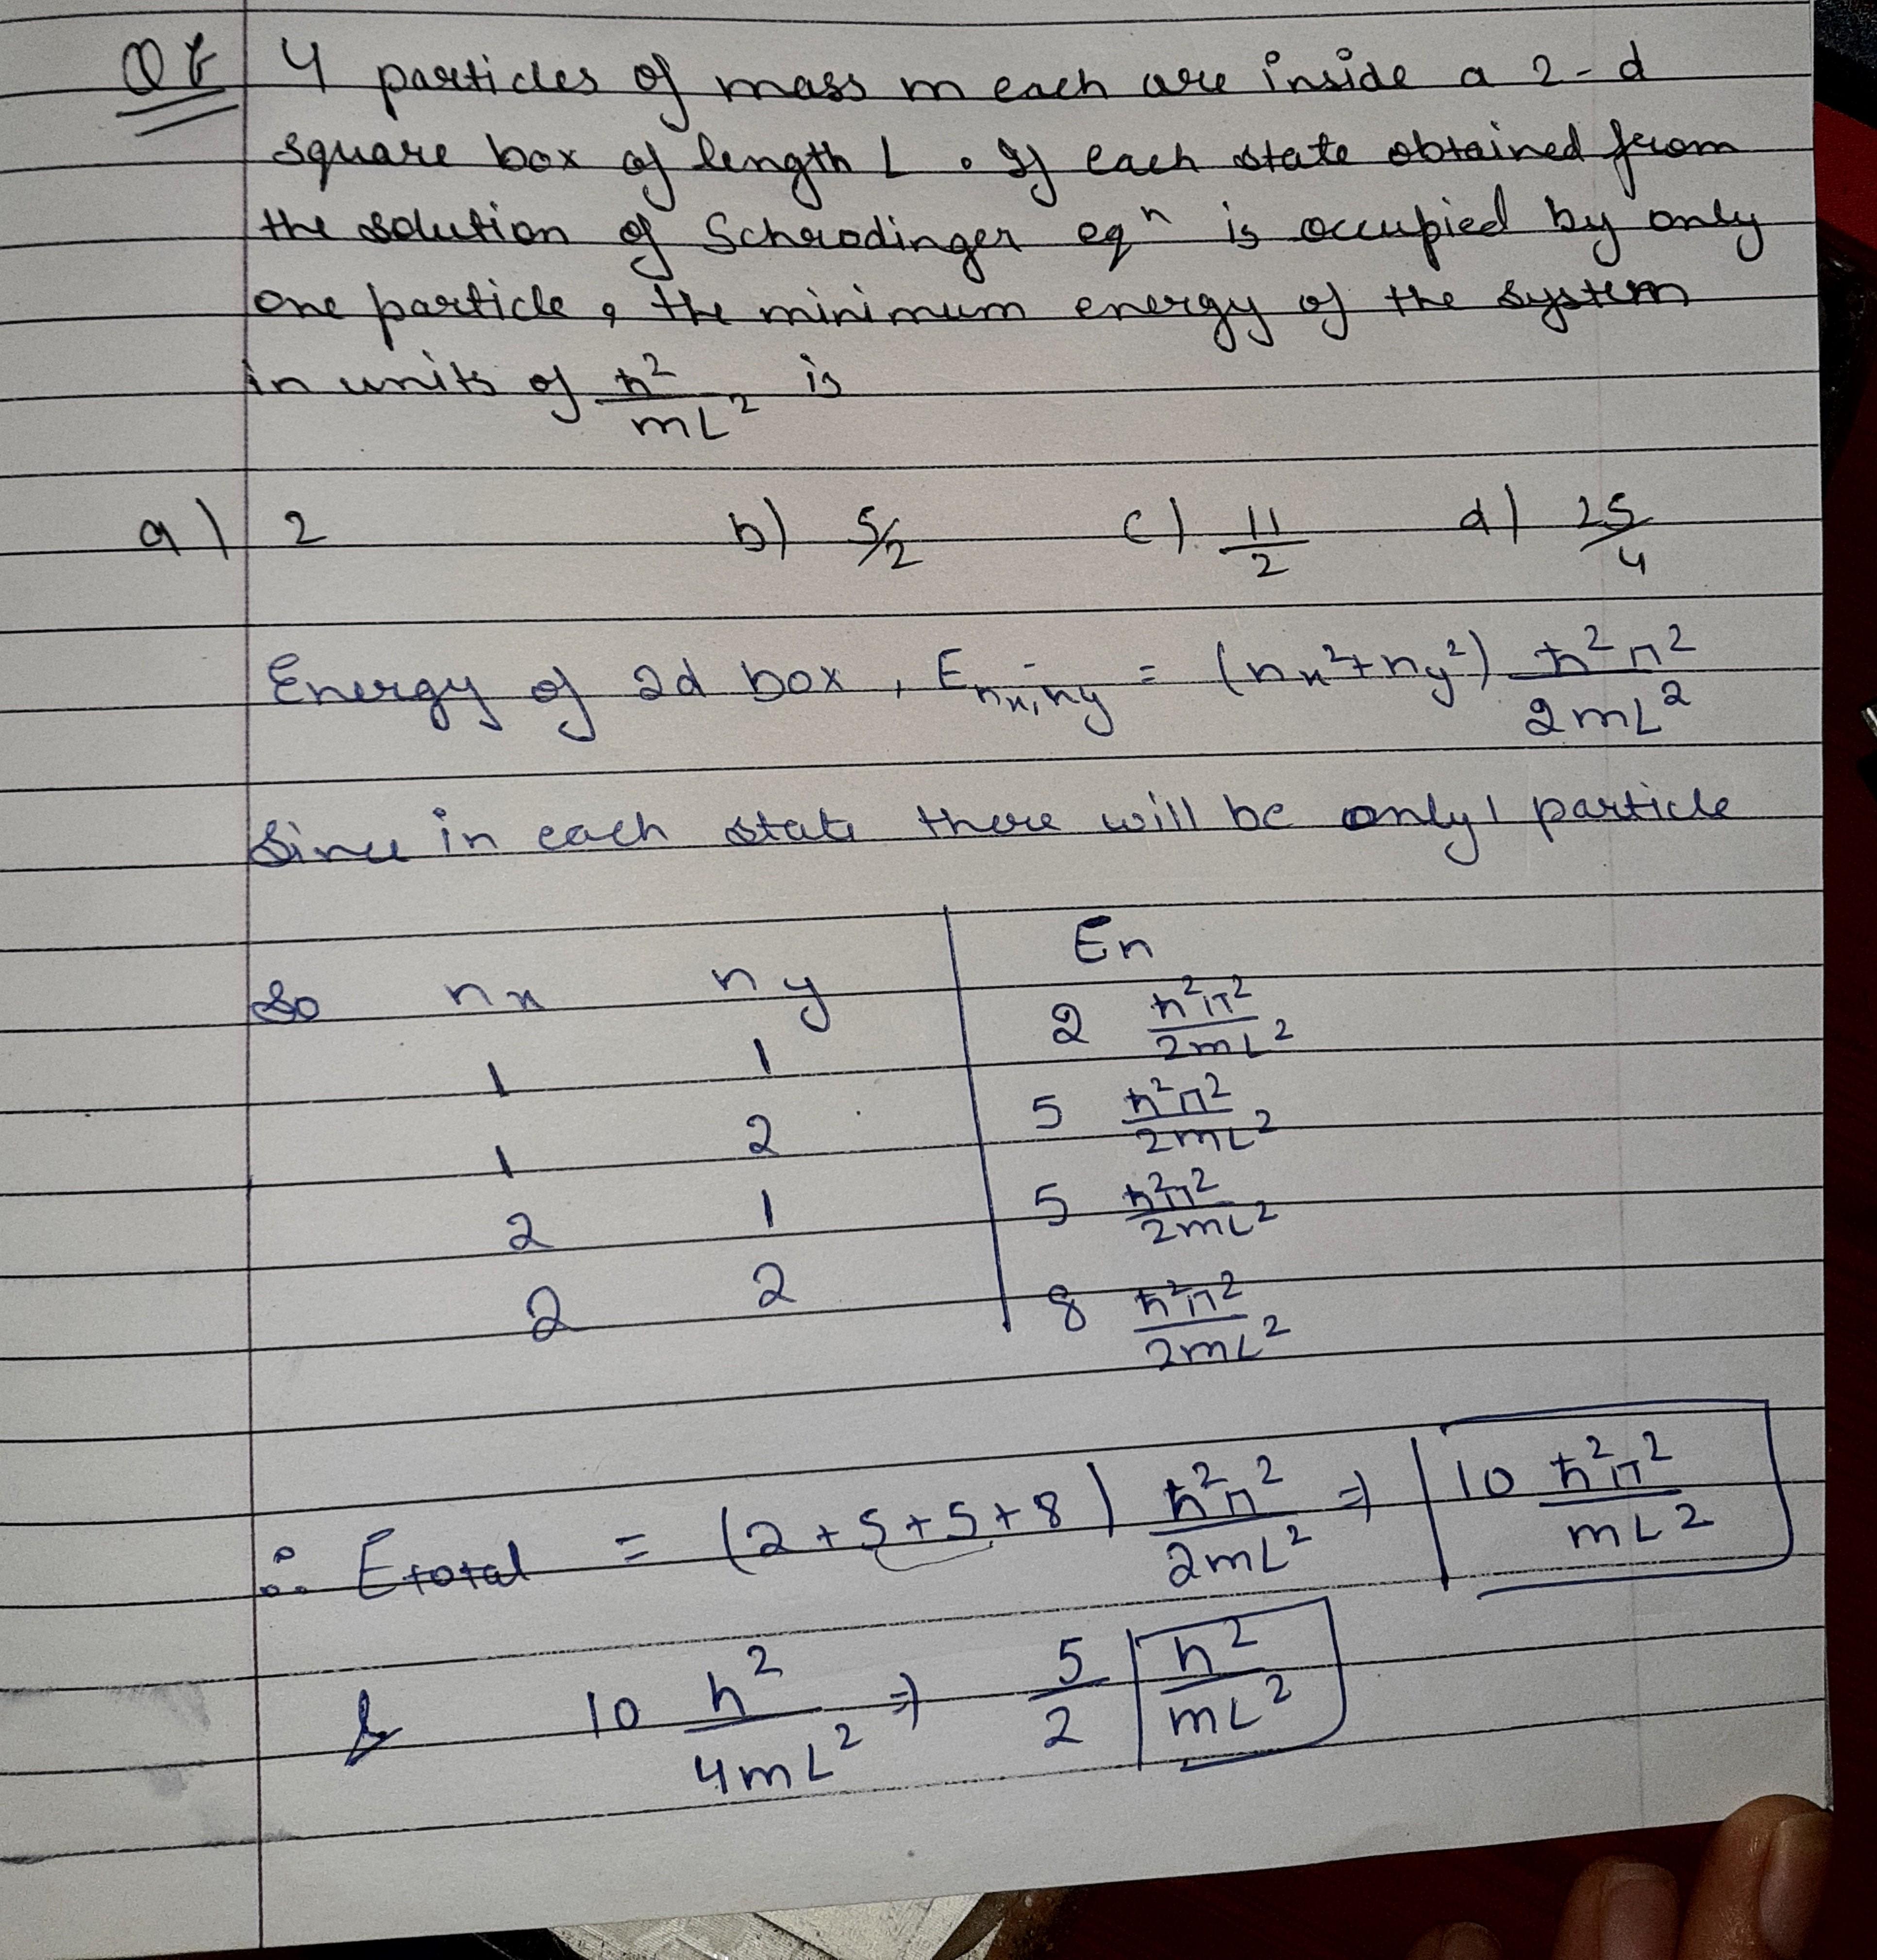 Q6 4 particles of mass m each are inside a 2-d
square box of length L. If each state obtained from
the solution of Schrodinger eqⁿ is occupied by only
one particle, the minimum energy of the system
in units of ħ²/mL² is
a) 2 b) 5/2 c) 11/2 d) 25/4
Energy of 2d box, E_nx,ny = (nx²+ny²) ħ²π²/2mL²
Since in each state there will be only 1 particle
So nx ny En
1 1 2 ħ²π²/2mL²
1 2 5 ħ²π²/2mL²
2 1 5 ħ²π²/2mL²
2 2 8 ħ²π²/2mL²
∴ Etotal = (2+5+5+8) ħ²π²/2mL² ⇒ 10 ħ²π²/mL²
10 h²/4mL² ⇒ 5/2 h²/mL²